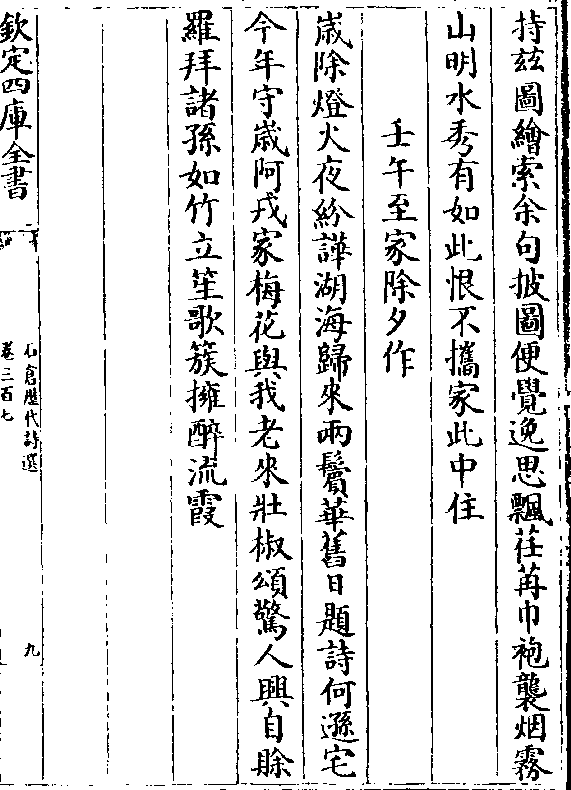 持茲圖繪索余句披圖便覺逸思飄荏苒巾袍襲烟霧
山明水秀有如此恨不攜家此中住
壬午至家除夕作
歲除燈火夜紛譁湖海歸來兩鬢華舊日題詩何遜宅
今年守歲阿戎家梅花與我老來壯椒頌驚人興自賒
羅拜諸孫如竹立笙歌簇擁醉流霞
欽定四庫全書
石倉歷代詩選
卷三百七
九